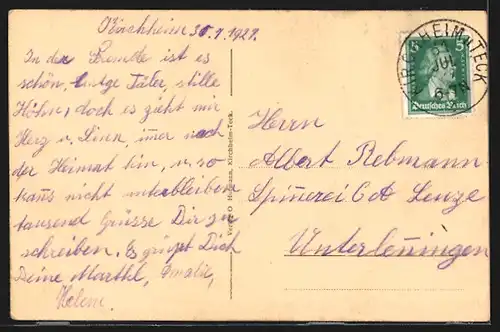 Kirchheim 30.7.1927.
In der Fremde ist es
schön, lustge Täler, stille
Höhn, doch es zieht mir
Herz u. Sinn, immer nach
der Heimat hin, u. so
kanns nicht unterbleiben
tausend Grüsse Dir zu
schreiben. Es grüsst Dich
Deine Marthl, Amalie,
Helene.
Kirchheim-Teck.
KIRCHHEIM u. TECK
JUL
5 5
Deutsches Reich
Herrn
Albert Rebmann
Spinnerei C A Leuze
Unterlenningen